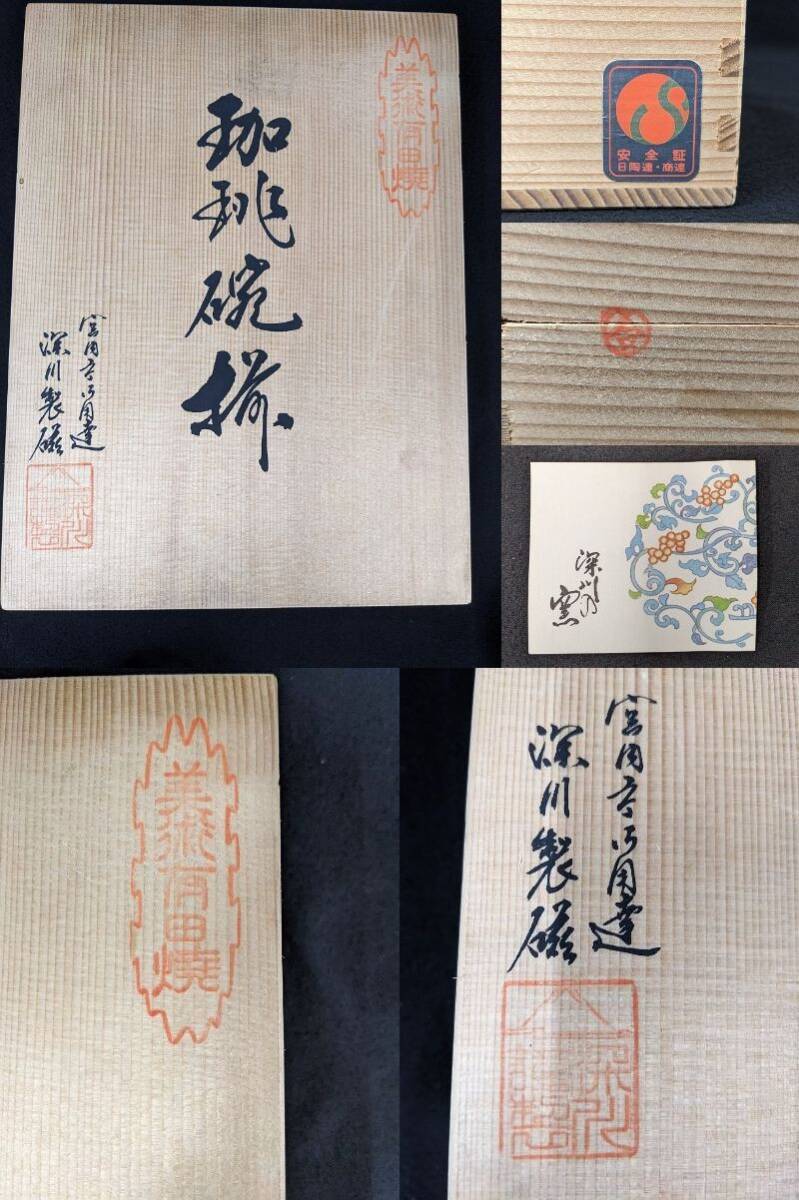 美術有田焼
珈琲碗揃
宮内庁御用達
深川製磁
安全証
日陶連・商連
深川の
窯
美術有田焼
宮内庁御用達
深川製磁